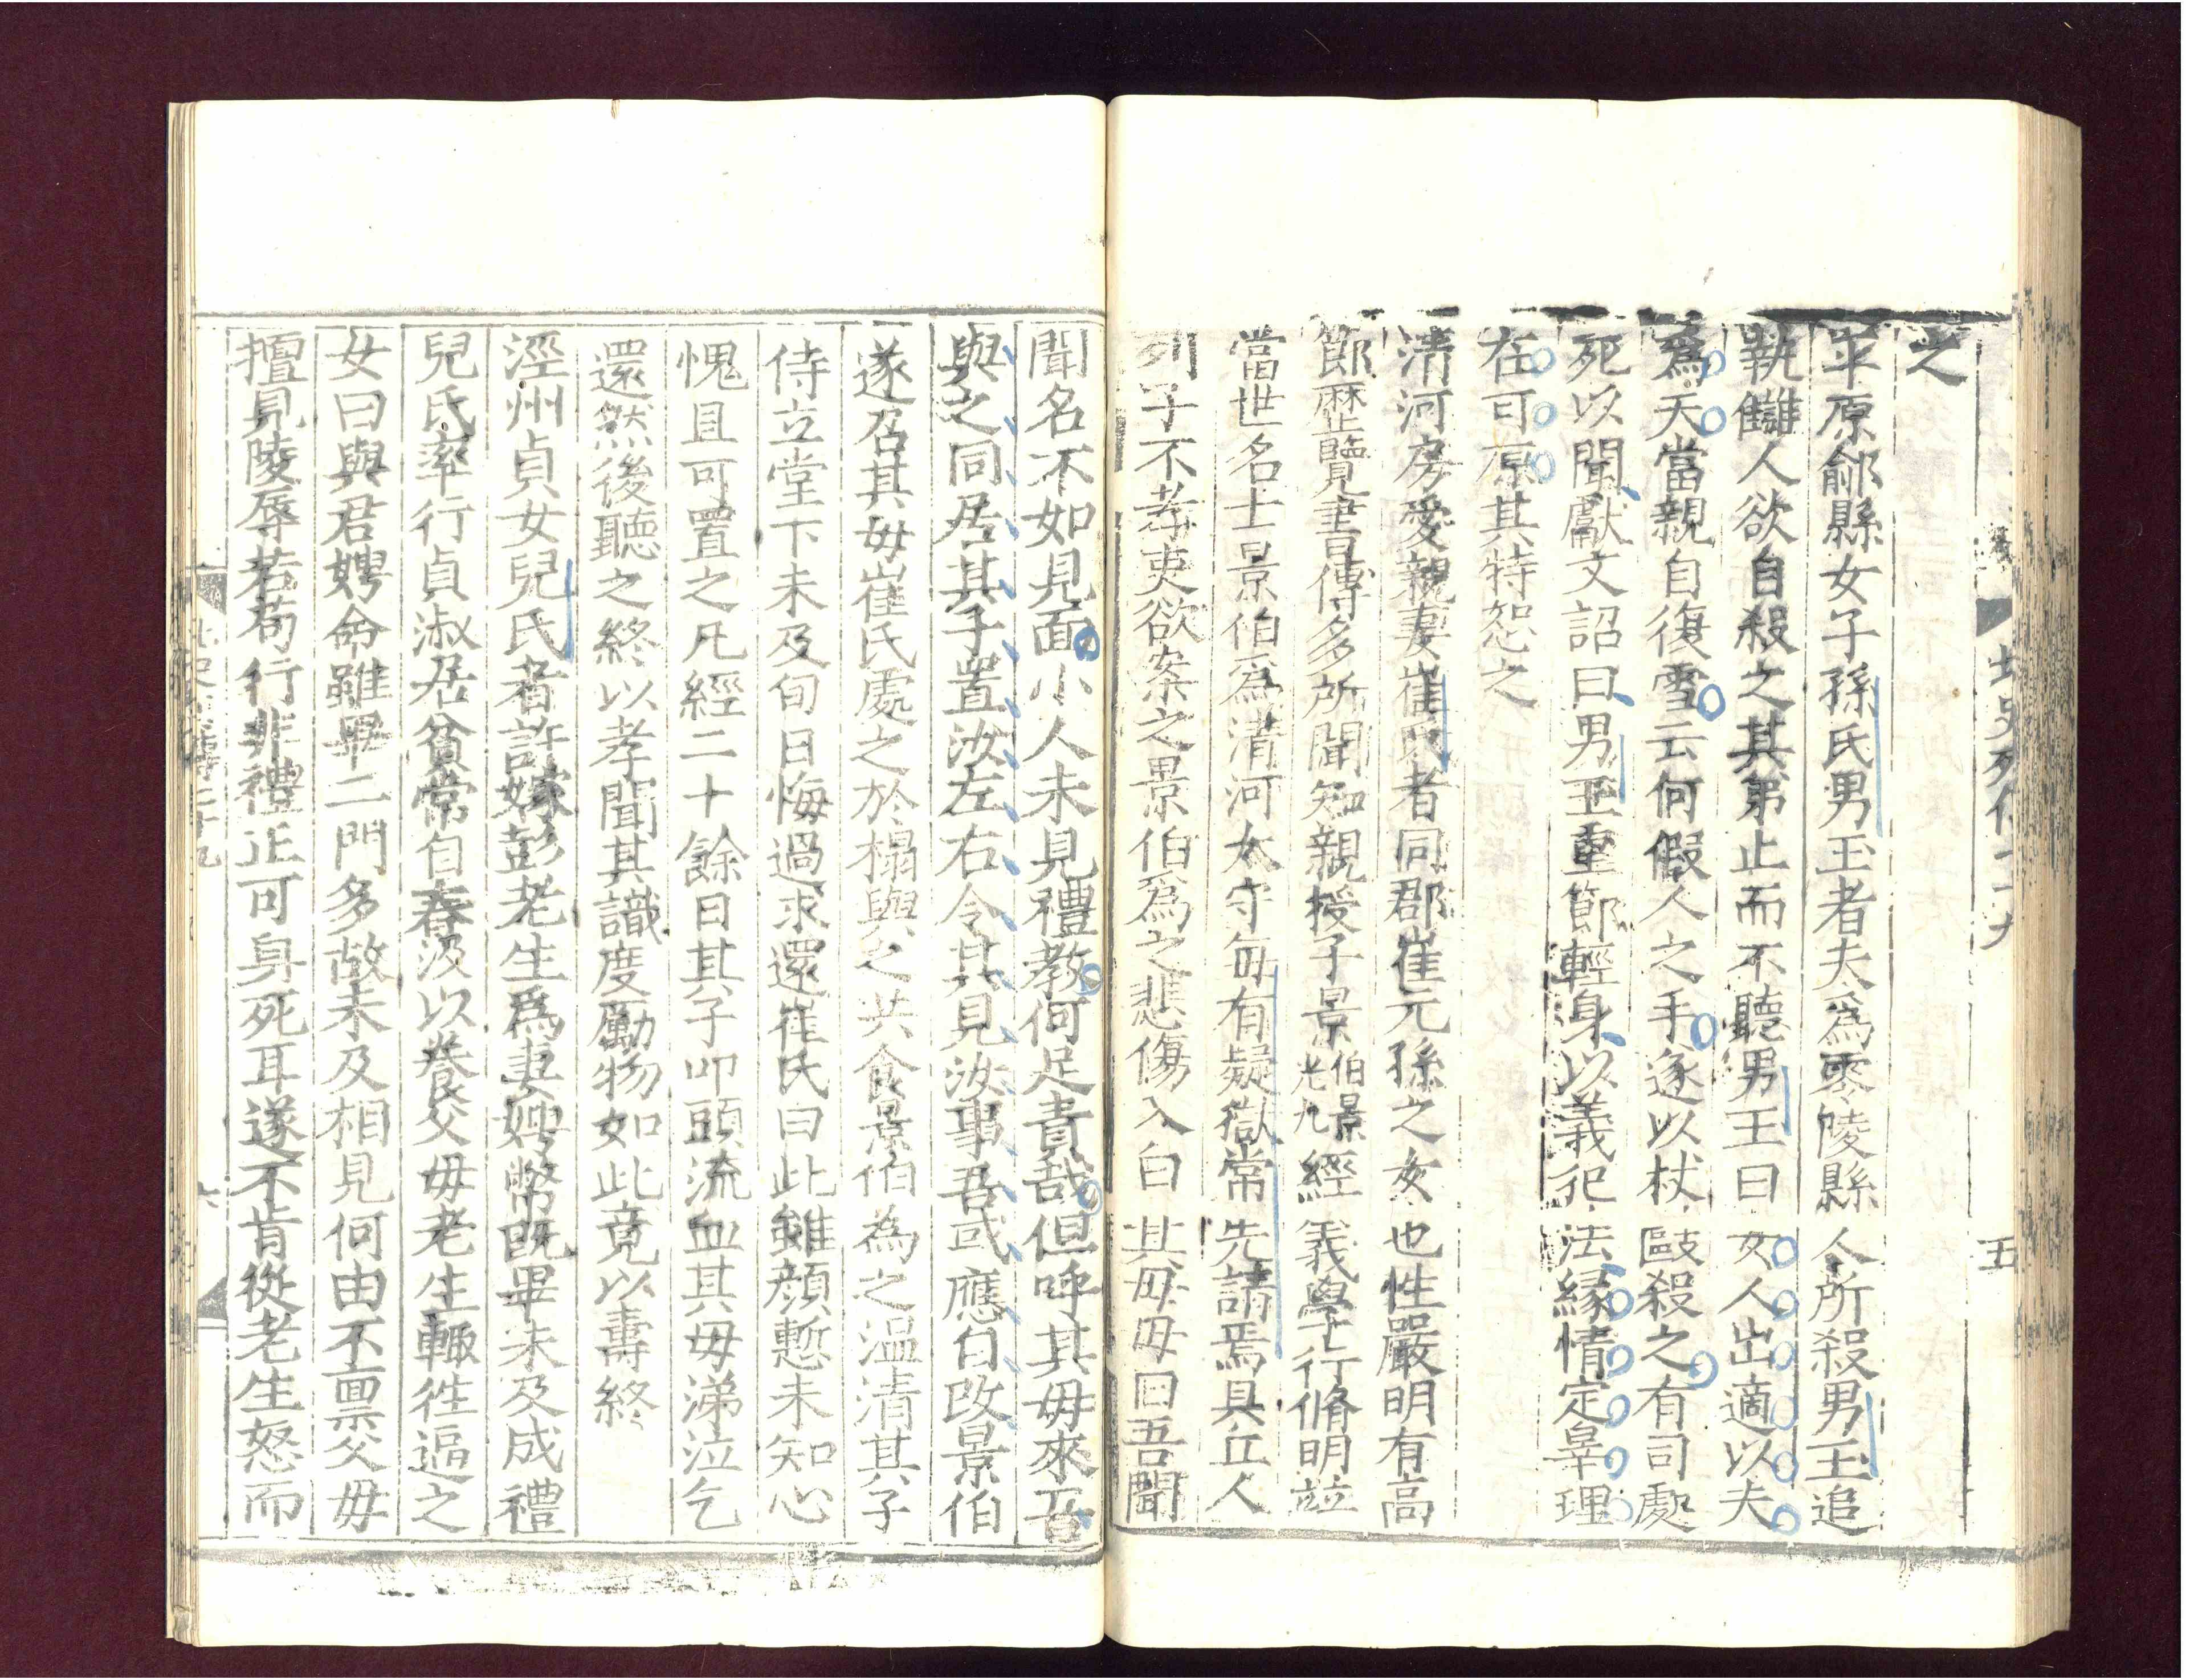 之
平原鄃縣女子孫氏男玉者夫爲零陵縣令所殺男玉追
執讎人欲自殺之其弟止而不聽男玉曰女人出適以夫
爲天當親自復雪云何假人之手遂以杖毆殺之有司處
死以聞獻文詔曰男玉重節輕身以義犯法緣情定辠理
在可原其特恕之
清河房愛親妻崔氏者同郡崔元孫之女也性嚴明有高
節歷覽書傳多所聞知親授子景伯景光九經義學行脩明竝
當世名士景伯爲清河太守每有疑獄常先請焉具丘人
列子不孝吏欲案之景伯爲之悲傷入白其母母曰吾聞
聞名不如見面小人未見禮教何足責哉但呼其母來吾
與之同居其子置汝左右令其見汝事吾或應自改景伯
遂召其母崔氏處之於榻與之共食景伯為之溫清其子
侍立堂下未及旬日悔過求還崔氏曰此雖顔慙未知心
愧且可置之凡經二十餘日其子叩頭流血其母涕泣乞
還然後聽之終以孝聞其識度厲物如此竟以壽終
涇州貞女兒氏者許嫁彭老生爲妻娉幣既畢未及成禮
兒氏率行貞淑居貧常自舂汲以養父母老生輙徃逼之
女曰與君娉命雖畢二門多故未及相見何由不稟父母
擅見陵辱若苟行非禮正可身死耳遂不肯從老生怒而
北史列傳二十九
五